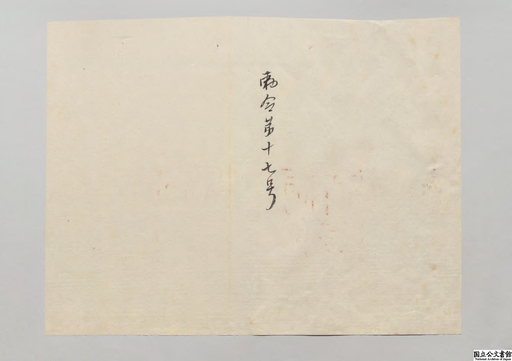 勅令第十七号
国立公文書館
National Archives of Japan